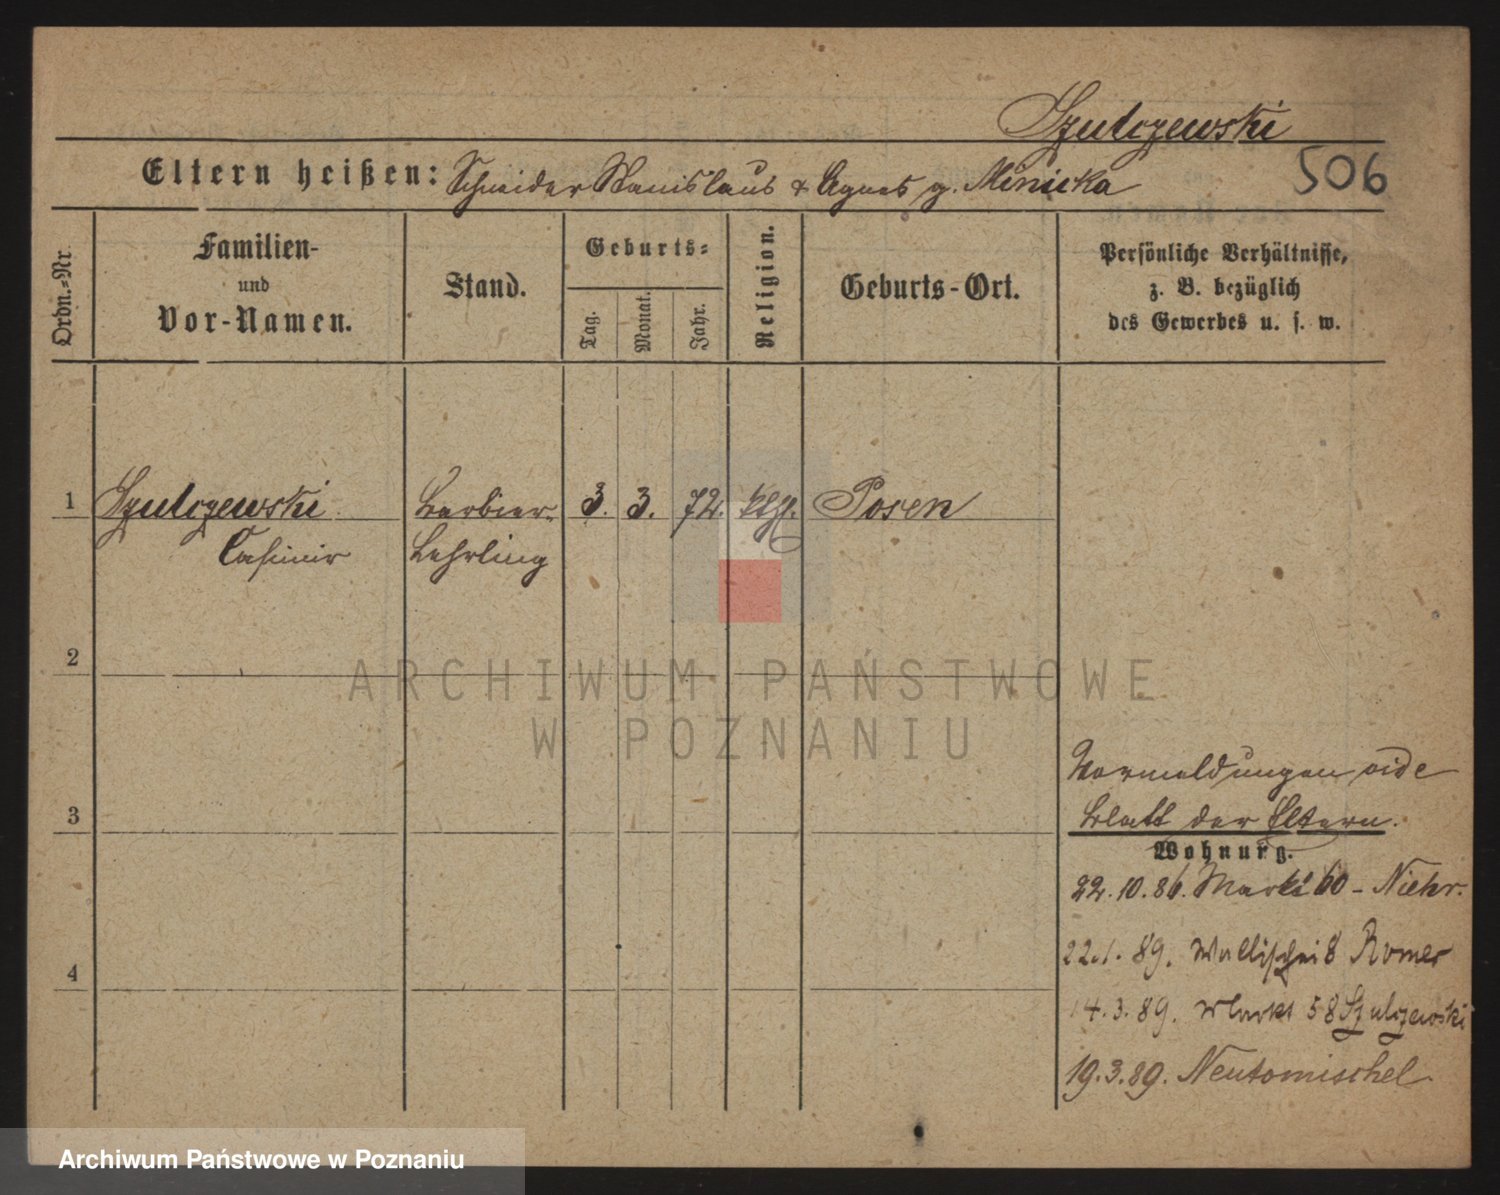 Szulczewski
Eltern heißen: Schneider Stanislaus & Agnes g. Minicka
506
Ordn.-Nr.
Familien-
und
Vor-Namen.
Stand.
Geburts-
Tag.
Monat.
Jahr.
Religion.
Geburts-Ort.
Persönliche Verhältnisse,
z. B. bezüglich
des Gewerbes u. s. w.
1 Szulczewski Barbier- 3. 3. 72. kth. Posen
Casimir Lehrling
2
ARCHIWUM PAŃSTWOWE
W POZNANIU
Vormeldungen vide
3 Blatt der Eltern.
Wohnung.
22.10.86. Markt 60 - Niehr.
4 22.1.89. Wallischei 8 Romer
14.3.89. Markt 58 Szulczewski
19.3.89. Neutomischel
Archiwum Państwowe w Poznaniu